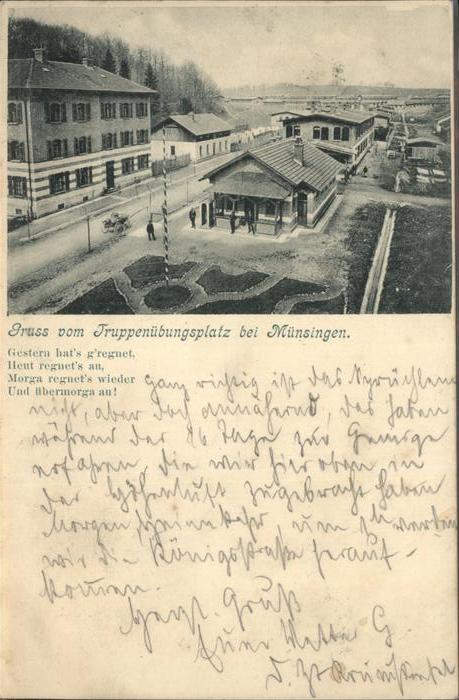 Gruss vom Truppenübungsplatz bei Münsingen.
Gestern hat's g'regnet,
Heut regnet's au,
Morga regnet's wieder
Und übermorga au!
ganz richtig ist das Sprüchlein
nicht, aber doch annähernd, das haben
während der 16 Tage zur Genüge
erfahren, die wir hier oben in
der Höhenluft zugebracht haben
Morgen Heimkehr, um werden
wir die Königsstraße herauf-
kommen.
Herzl. Gruß
Euer Vetter G.